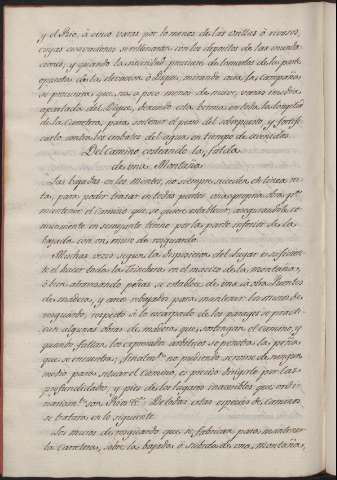 y el Rio, à cinco varas por lo menos de las orillas ò riveras,
cuyas excavaciones se rellenaran con los depositos de las inunda
ciones, y quando la necesidad precisare de tomarlas de la parte
opuesta de la elevacion ò Dique, mirando acia la campaña
se procurará que, sea à poco menos de nueve, varas
apartada del Dique, dexando esta berma en toda la longitud
de la Carretera, para sostener el peso del sobrepuesto, y fortifi
carlo contra los embates del agua en tiempo de crecidas.
Del camino costeando la falda
de una Montaña
Las bajadas en los Montes, no siempre suceden en linea rec
ta, para poder trazar en todas partes una propria obra pª.
mantener el Camino que se quiere establecer, asegurandole co
munmente en semejante terreno por la parte inferior de la
bajada con un muro de resguardo.
Muchas veces segun la disposicion del Lugar es suficien
te el hacer toda la Trinchera en el macizo de la montaña,
ò bien atravesando peñas se establece de una à otra Puentes
de madera, y aun rebajadas para mantener los muros de
resguardo, respecto à lo escarpado de los parages se practi
can algunas obras de madera que sostengan el camino, y
quando faltan los expresados arbitrios se penetra la peña
que se encuentra; Finalmte. no pudiendo servirse de ningun
medio para situar el Camino, es preciso dirigirle por las
profundidades, y pies de los lugares inaccesibles que ordi
nariamte. son Rios &c. De todas estas especies de caminos
se tratara en lo siguiente
Los muros de resguardo que se fabrican para mantener
la Carretera, sobre la bajada ò subida de una montaña,